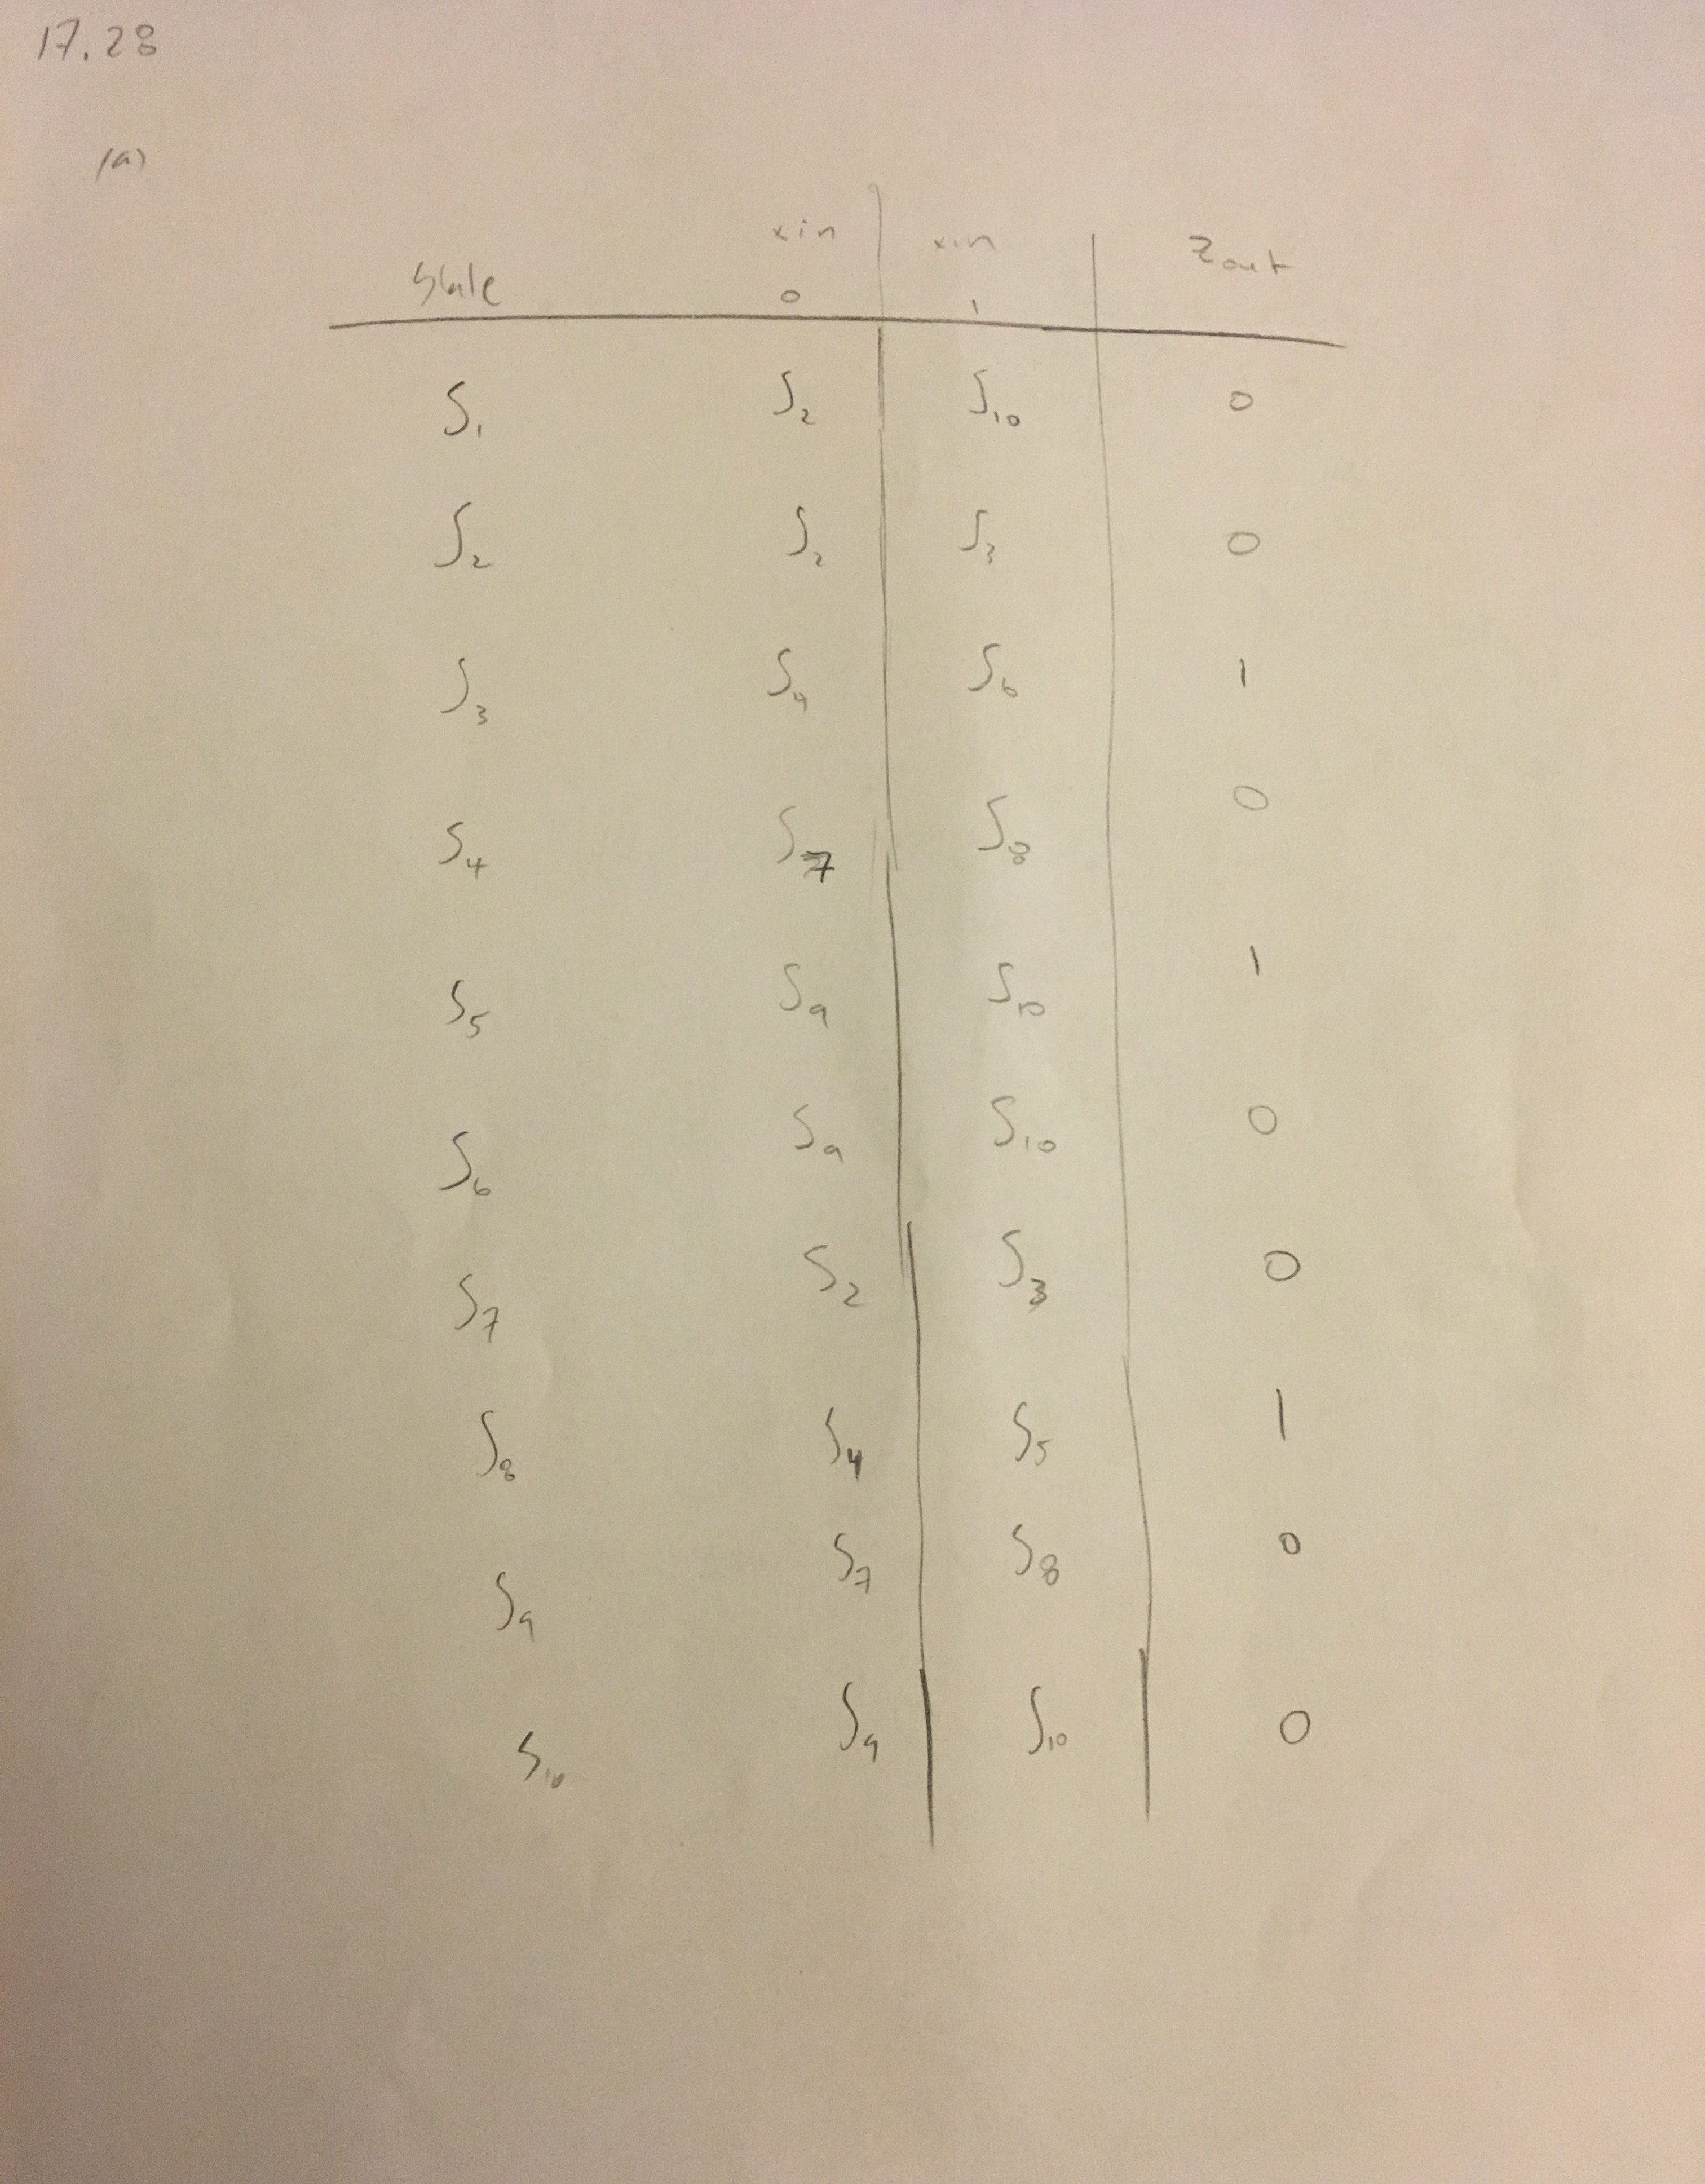 17.28
(a)
State xin 0 xin 1 Zout
S1 S2 S10 0
S2 S2 S3 0
S3 S9 S6 1
S4 S7 S8 0
S5 S9 S10 1
S6 S9 S10 0
S7 S2 S3 0
S8 S4 S5 1
S9 S7 S8 0
S10 S9 S10 0